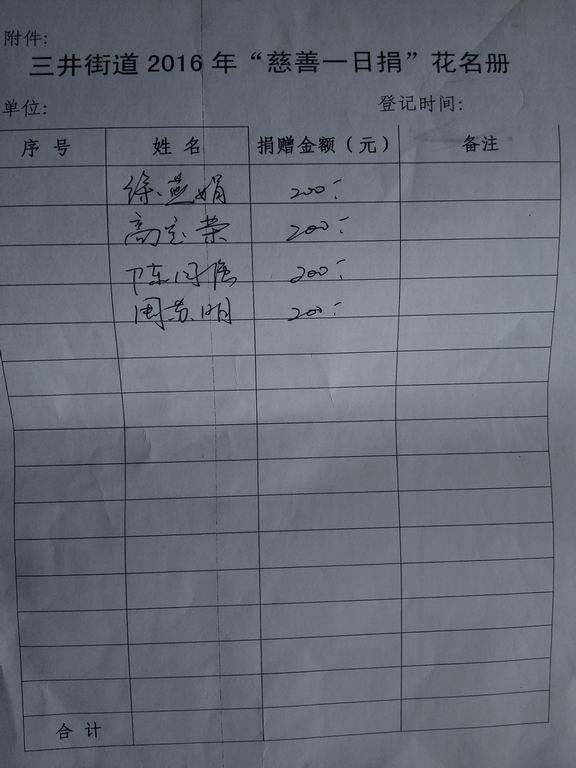 附件:
三井街道 2016 年“慈善一日捐”花名册
单位: 登记时间:
序 号 姓 名 捐赠金额（元） 备注
徐燕娟 200
高宝荣 200
陈 200
周苏明 200
合 计